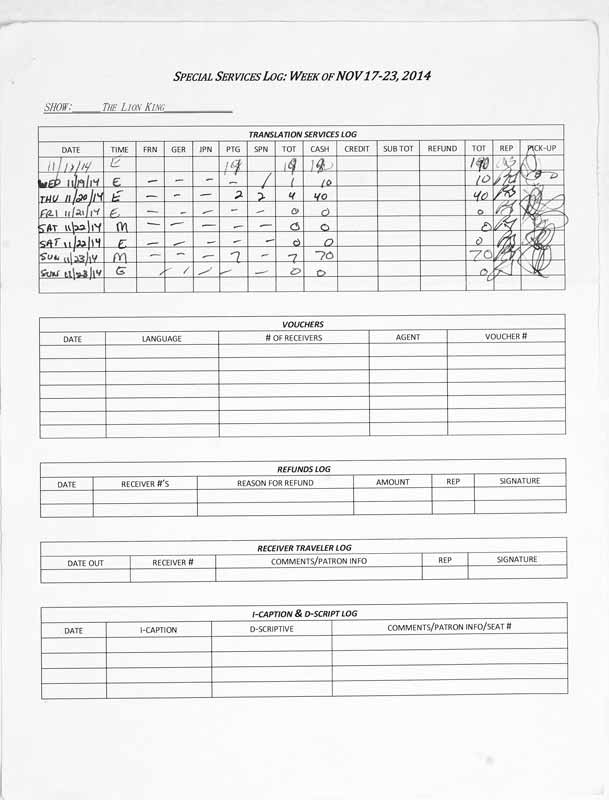 SPECIAL SERVICES LOG: WEEK OF NOV 17-23, 2014
SHOW: THE LION KING
TRANSLATION SERVICES LOG
DATE TIME FRN GER JPN PTG SPN TOT CASH CREDIT SUB TOT REFUND TOT REP PICK-UP
E 19 19 190 190
WED 11/19/14 E — — — — 1 1 10 10
THU 11/20/14 E — — — 2 2 4 40 40
FRI 11/21/14 E — — — — — 0 0 0
SAT 11/22/14 M — — — — — 0 0 0
SAT 11/22/14 E — — — — — 0 0 0
SUN 11/23/14 M — — — 7 — 7 70 70
SUN 11/23/14 E — — — — — 0 0 0
VOUCHERS
DATE LANGUAGE # OF RECEIVERS AGENT VOUCHER #
REFUNDS LOG
DATE RECEIVER #'S REASON FOR REFUND AMOUNT REP SIGNATURE
RECEIVER TRAVELER LOG
DATE OUT RECEIVER # COMMENTS/PATRON INFO REP SIGNATURE
I-CAPTION & D-SCRIPT LOG
DATE I-CAPTION D-SCRIPTIVE COMMENTS/PATRON INFO/SEAT #